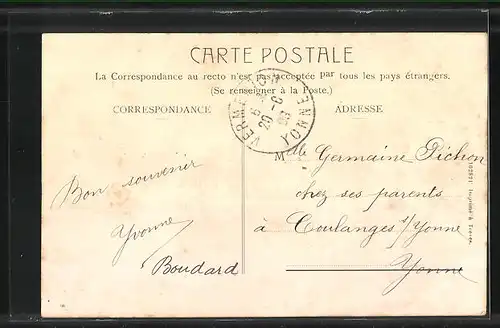 CARTE POSTALE
La Correspondance au recto n'est pas acceptée par tous les pays étrangers.
(Se renseigner à la Poste.)
CORRESPONDANCE
ADRESSE
YONNE
Melle Germaine Pichon
chez ses parents
à Coulanges s/Yonne
Yonne
Bon souvenir
Yvonne
Boudard
Imprimé à Trèves